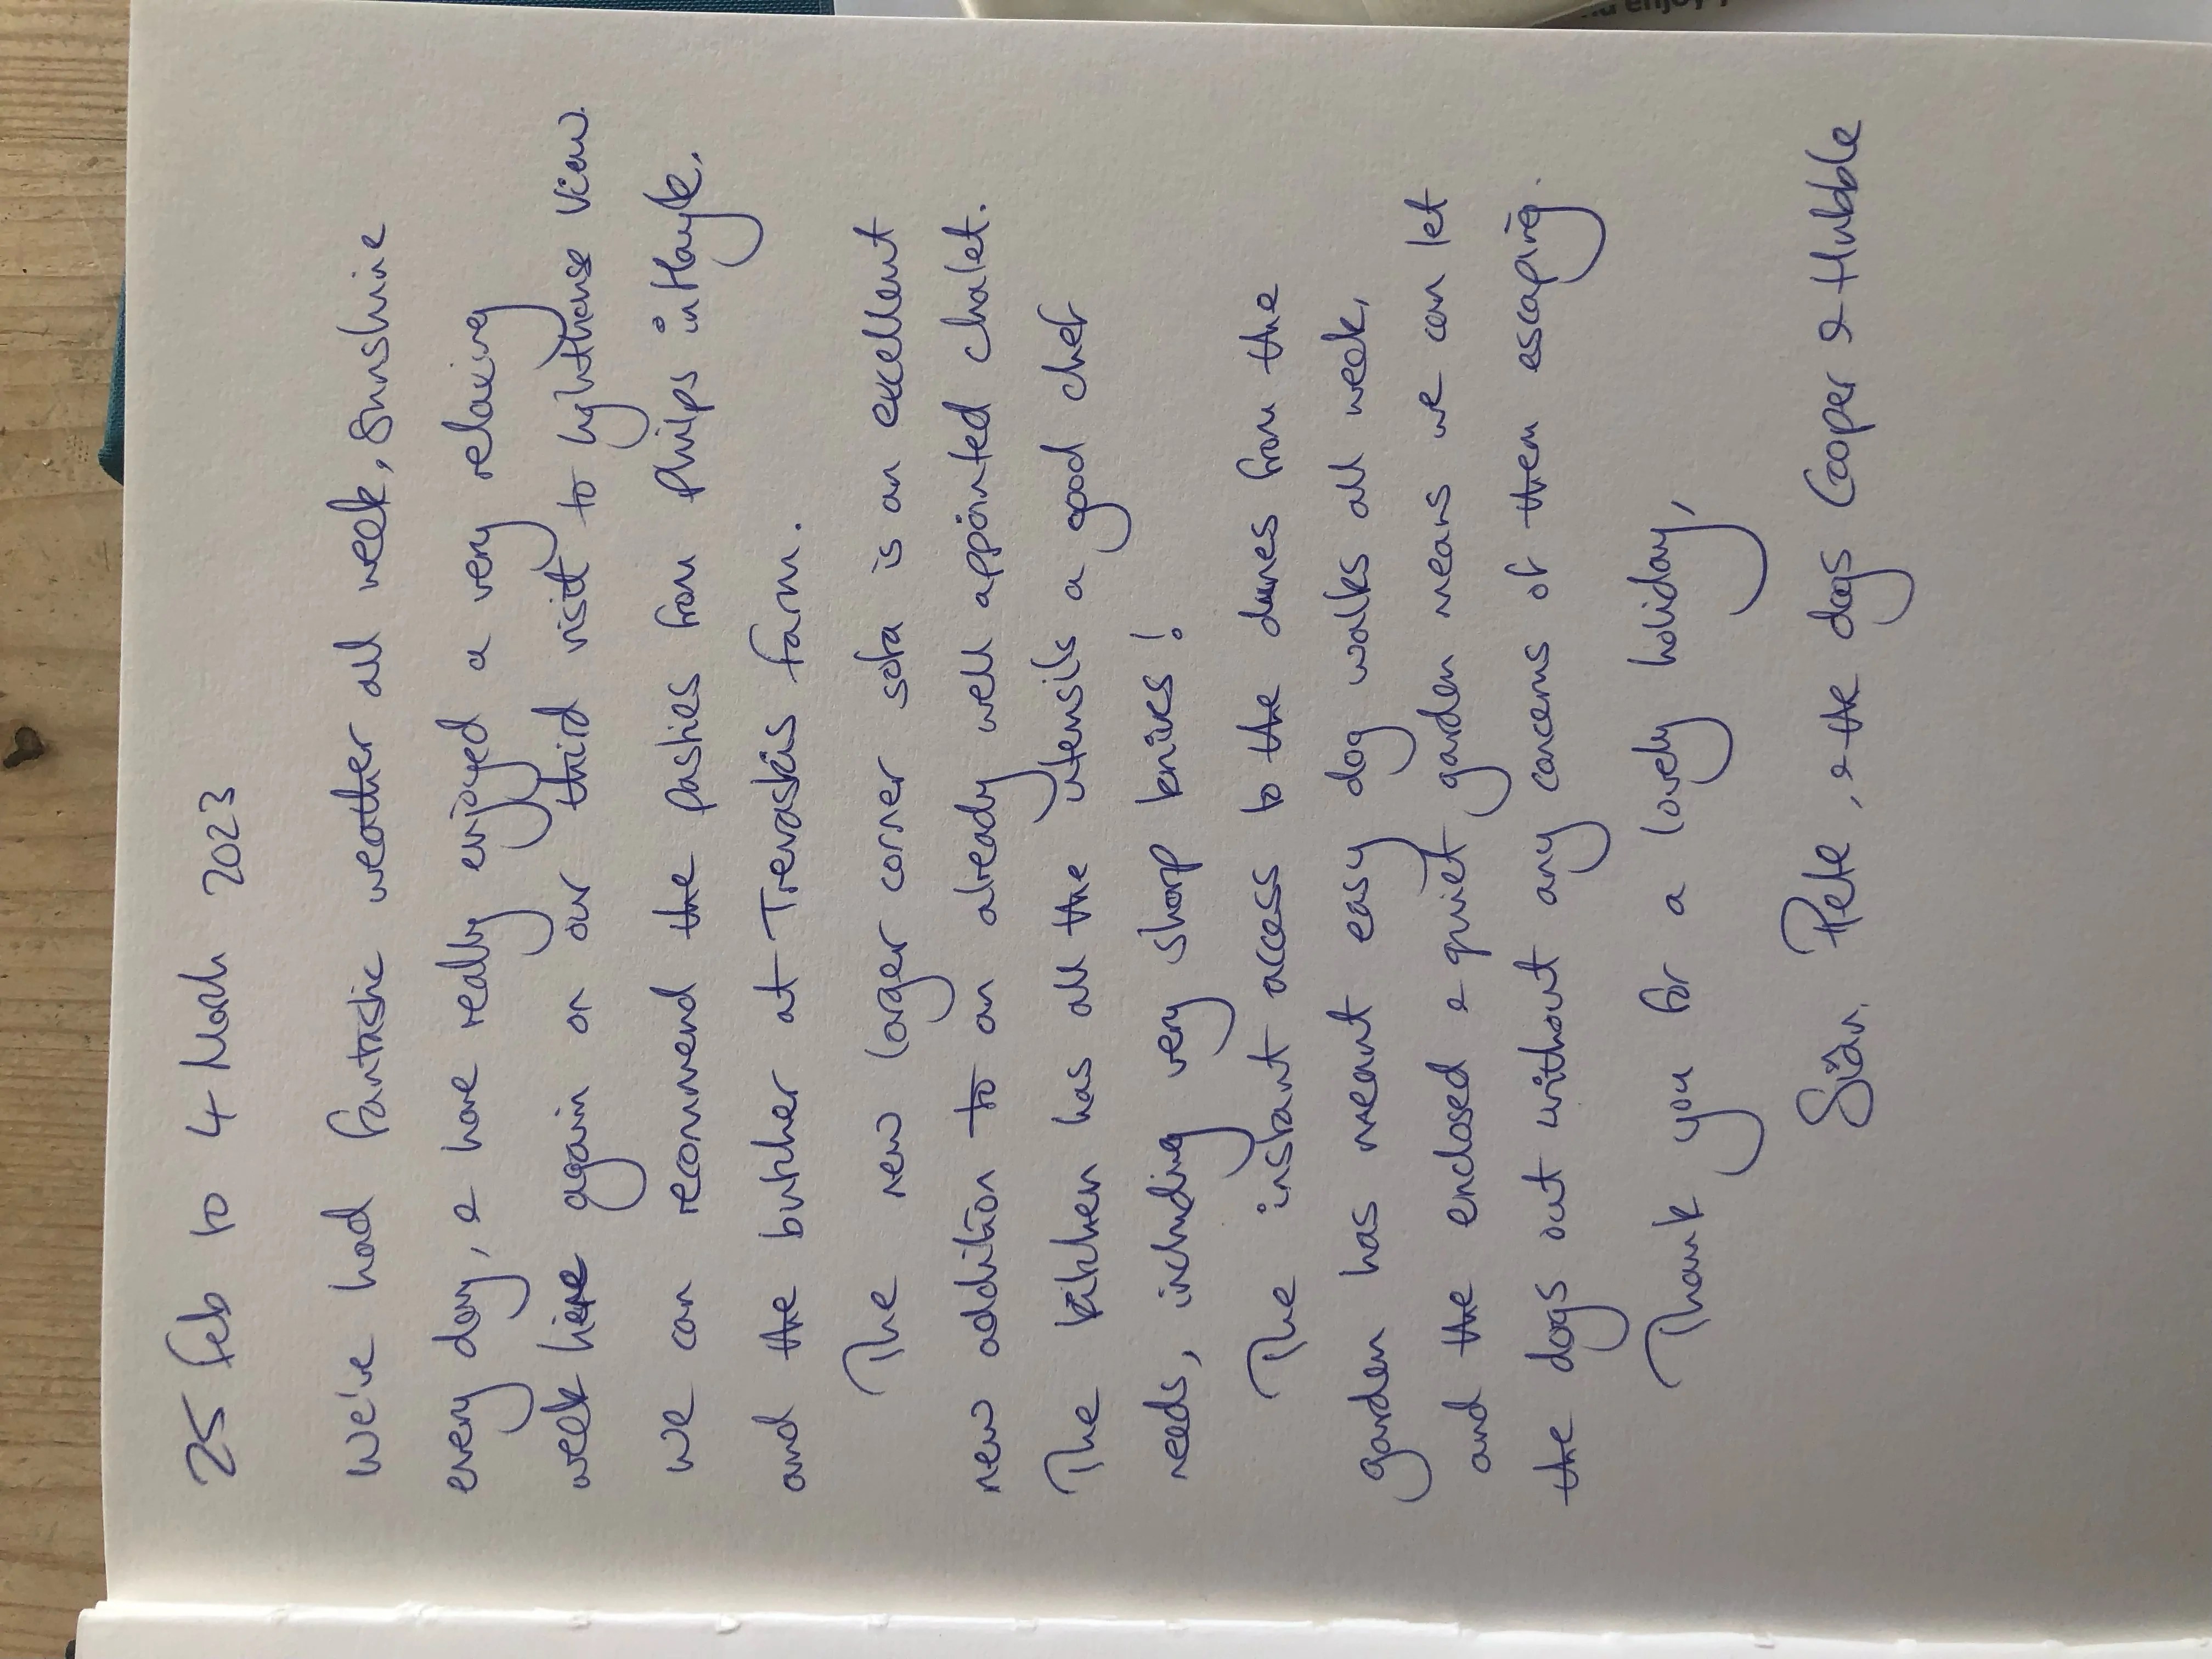 25 Feb to 4 March 2023
We've had fantastic weather all week, sunshine
every day, & have really enjoyed a very relaxing
week here again on our third visit to Lighthouse View.
we can recommend the pasties from Philps in Hayle,
and the butcher at Trevaskis farm.
The new larger corner sofa is an excellent
new addition to an already well appointed chalet.
The kitchen has all the utensils a good chef
needs, including very sharp knives!
The instant access to the dunes from the
garden has meant easy dog walks all week,
and the enclosed & quiet garden means we can let
the dogs out without any concerns of them escaping.
Thank you for a lovely holiday,
Siân, Pete, & the dogs Cooper & Hubble
enjoy